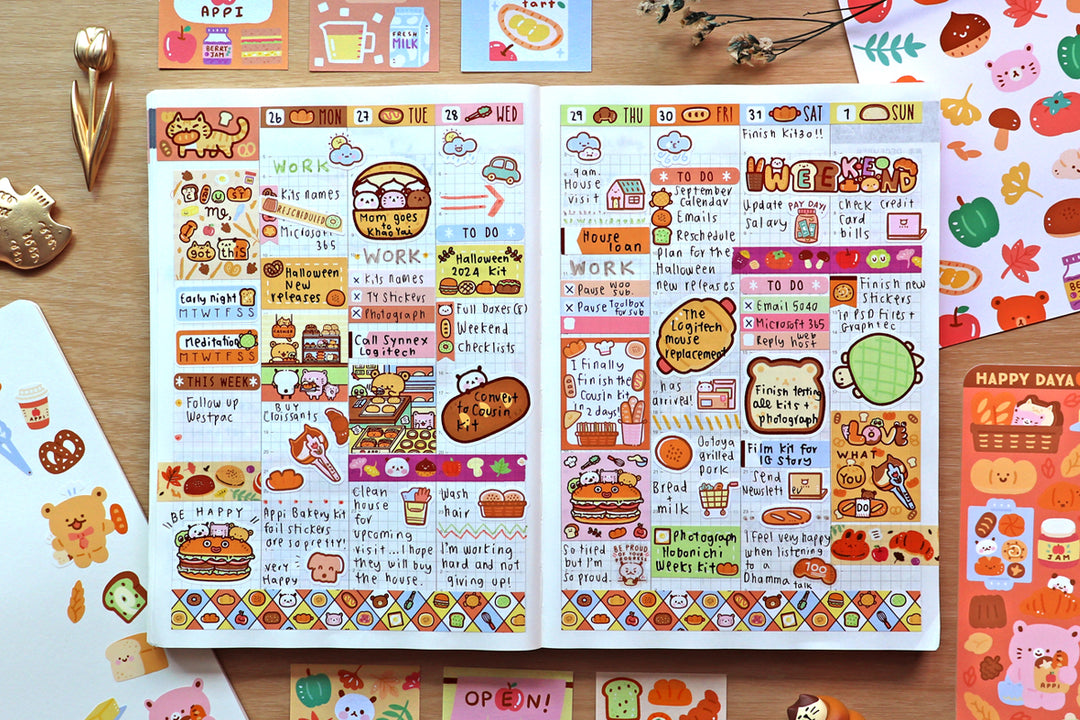 APPI
BERRY
JAM
FRESH
MILK
tart
26 MON
WORK
Kits names
RESCHEDULED
Microsoft
365
Mg,
got this
Halloween
New
releases
Early night
M T W T F S S
Meditation
M T W T F S S
THIS WEEK
Follow up
Westpac
BE HAPPY
BUY
Cloissants
Appi Bakery kit
foil stickers
are so pretty!
very
Happy
27 TUE
Mom goes
to
Khao Yai
WORK
Kits names
TY Stickers
Photograph
Call Synnex
Logitech
Clean
house
for
upcoming
visit...I hope
they will buy
the house.
28 WED
TO DO
Halloween
2024 Kit
Full boxes(s)
Weekend
Checklists
Convert
to Cousin
kit
Wash
hair
I'm working
hard and not
giving up!
29 THU
9am.
House
visit
House
loan
WORK
Pause Woo
Sub.
Pause Toolbox
for sub
I finally
finish the
Cousin kit
in 2 days!
So tired
but I'm
so proud.
BE PROUD
OF YOUR
PROGRESS
30 FRI
TO DO
September
calendar
Emails
Reschedule
plan for the
Halloween
new releases
The
Logitech
mouse
replacement
has
arrived!
Ootoya
grilled
pork
Bread
+
milk
Photograph
Hobonichi
Weeks kit
31 SAT
Finish kit30!!
WEEKEND
Update
salary
PAY DAY!
TO DO
Email 5040
Microsoft 365
Reply web
host
Finish testing
all kits +
photograph
Film kit for
IG Story
Send
Newslett
I feel very happy
when listening
to a
Dhamma talk
100
1 SUN
check credit
card
bills
Finish new
stickers
in PSD Files +
Graphtec
LOVE
WHAT
YOU
DO
HAPPY DAYA
JAM
APPI
APPI
OPEN!